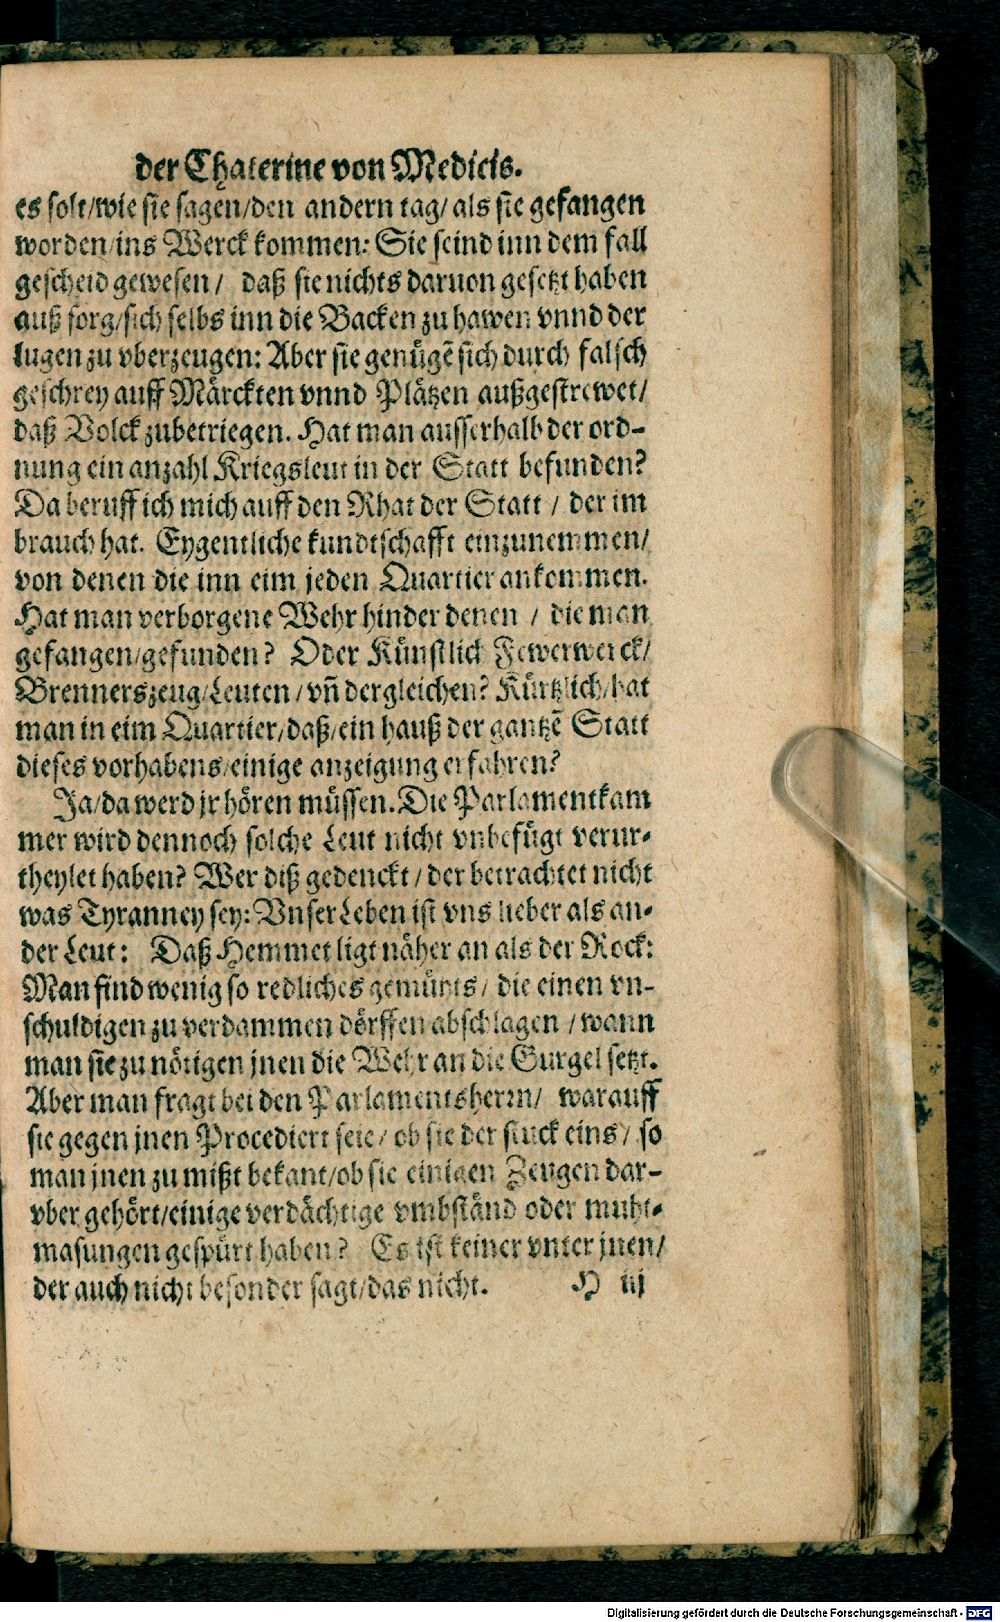 der Chaterine von Medicis.
es solt/wie sie sagen/den andern tag/als sie gefangen
worden/ins Werck kommen: Sie seind inn dem fall
gescheid gewesen / daß sie nichts daruon gesetzt haben
auß sorg/sich selbs inn die Backen zu hawen vnnd der
lugen zu vberzeugen: Aber sie genügē sich durch falsch
geschrey auff Märckten vnnd Plätzen außgestrewet/
daß Volck zubetriegen. Hat man ausserhalb der ord-
nung ein anzahl Kriegsleut in der Statt befunden?
Da beruff ich mich auff den Rhat der Statt / der im
brauch hat. Eygentliche kundtschafft einzunemmen/
von denen die inn eim jeden Quartier ankommen.
Hat man verborgene Wehr hinder denen / die man
gefangen/gefunden? Oder Künstlich Fewerwerck/
Brennerszeug/Leuten/vñ dergleichen? Kürtzlich/hat
man in eim Quartier/daß/ein hauß der gantzē Statt
dieses vorhabens/einige anzeigung erfahren?
Ja/da werd jr hören müssen. Die Parlamentkam
mer wird dennoch solche Leut nicht vnbefügt verur-
theylet haben? Wer diß gedenckt / der betrachtet nicht
was Tyranney sey: Vnser Leben ist vns lieber als an-
der Leut: Daß Hemmet ligt näher an als der Rock:
Man find wenig so redliches gemüts / die einen vn-
schuldigen zu verdammen dörffen abschlagen / wann
man sie zu nötigen jnen die Wehr an die Gurgel setzt.
Aber man fragt bei den Parlamentsherrn/ warauff
sie gegen jnen Procediert seie/ ob sie der stuck eins/ so
man jnen zu mißt bekant/ob sie einigen Zeugen dar-
vber gehört/einige verdächtige vmbständ oder muht-
masungen gespürt haben? Es ist keiner vnter jnen/
der auch nicht besonder sagt/das nicht. H iij
Digitalisierung gefördert durch die Deutsche Forschungsgemeinschaft - DFG